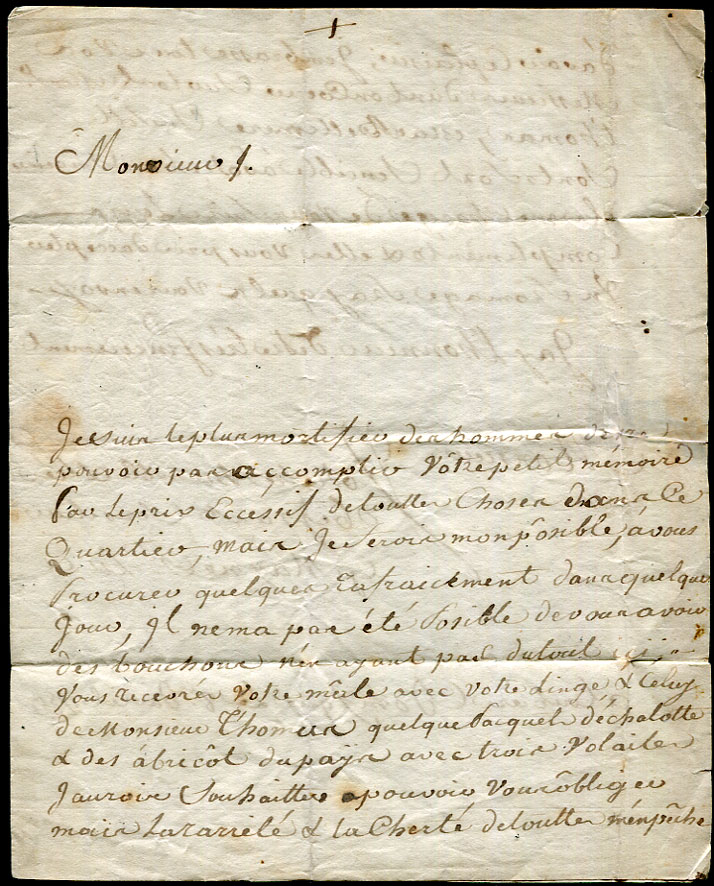 +
Monsieur /.
Je suis le plus mortifier des hommes de ne
pouvoir pas accomplir vôtre petit mémoire
par le prix Eccessif de toutter Choses dans Ce
Quartier, mais Je ferois mon pôsible, á vous
Procurer quelques rafraicement dans quelque
Jour, Il nema pas été Posible de vous avoir
des bouchons n'en ayant pas du tout ici
Vous recevrés Votre mâle avec votre Linge & Celuy
de Monsieur Thomas quelque Pacquet d'échalotte
& des ábricôt du pays avec trois Volailes
Jaurois Souhaitter pouvoir vous ôbliger
mais La rarreté & la Cherté de toutter m'enpêche